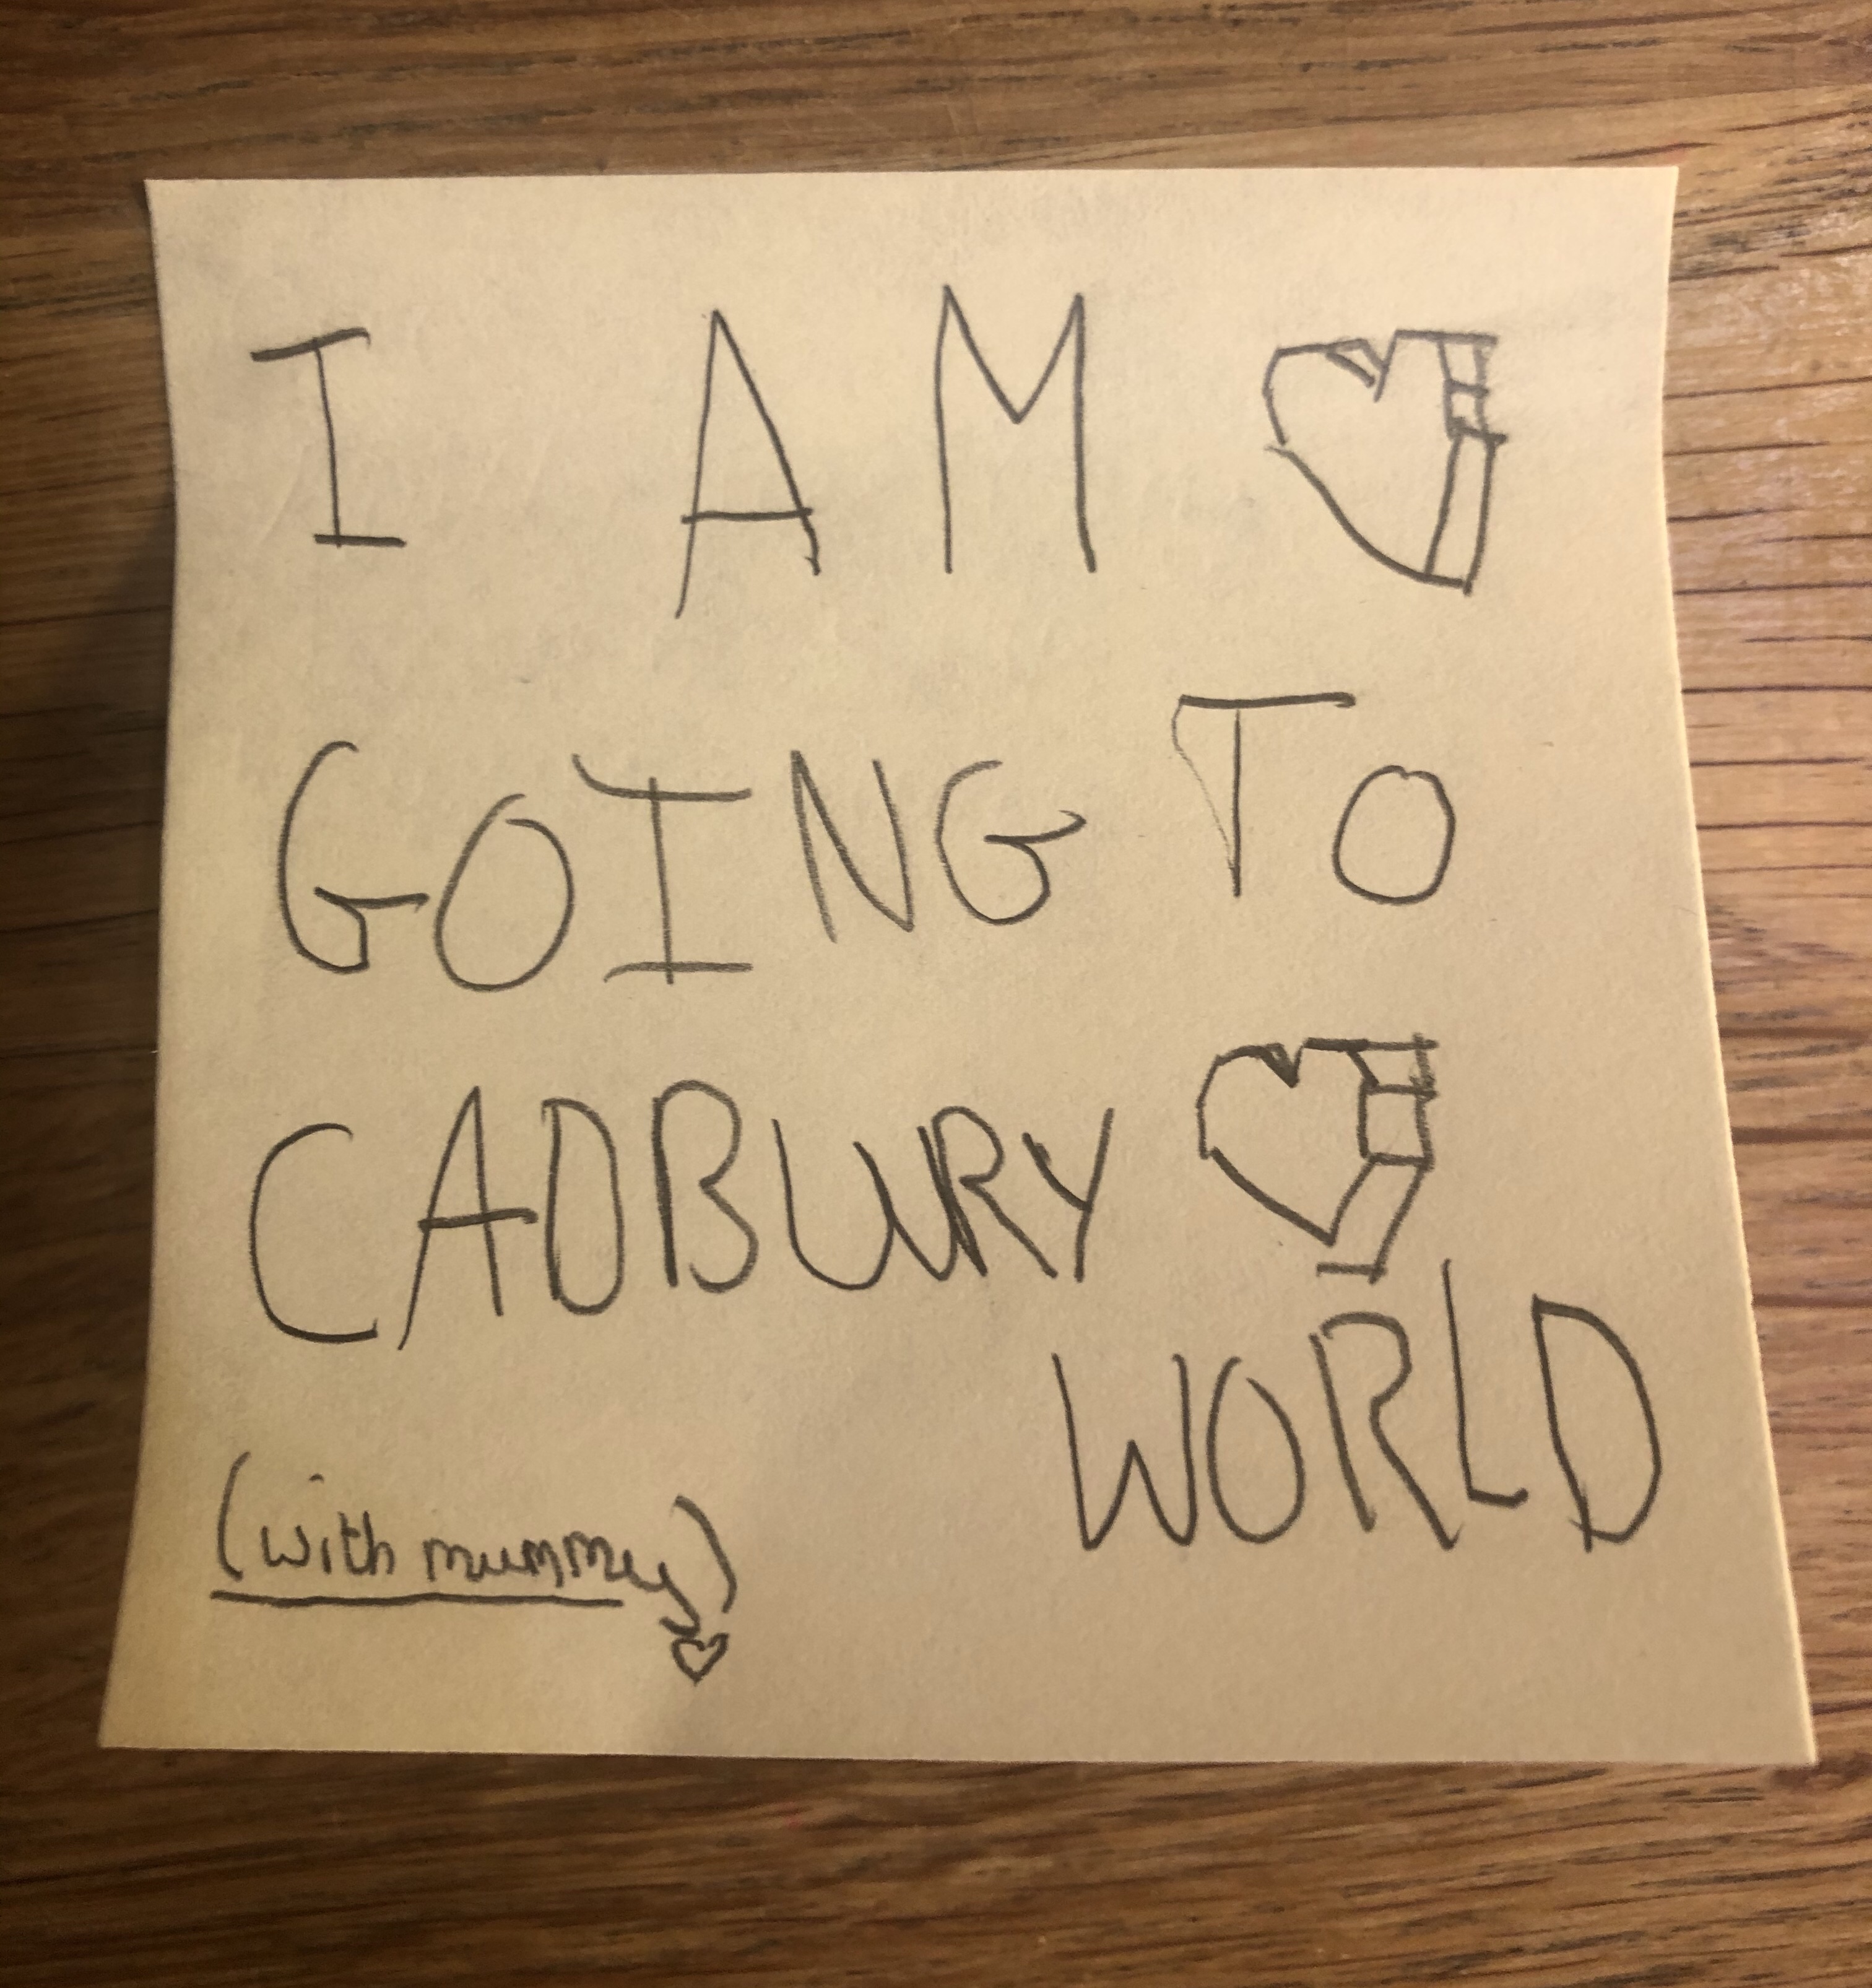 I AM
GOING TO
CADBURY
WORLD
(with mummy)